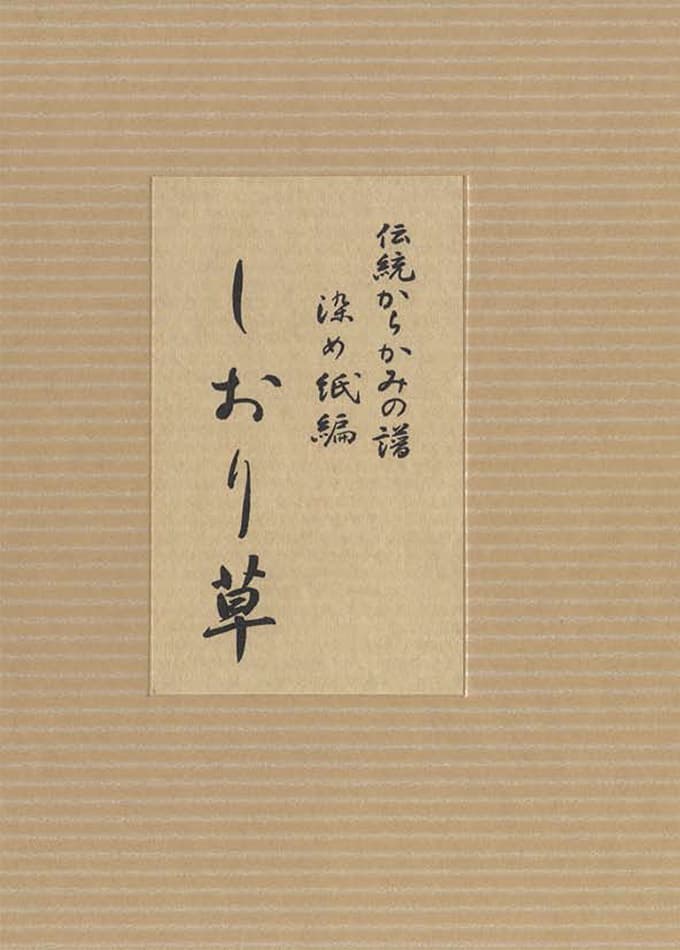 伝統からかみの譜
染め紙編
しおり草